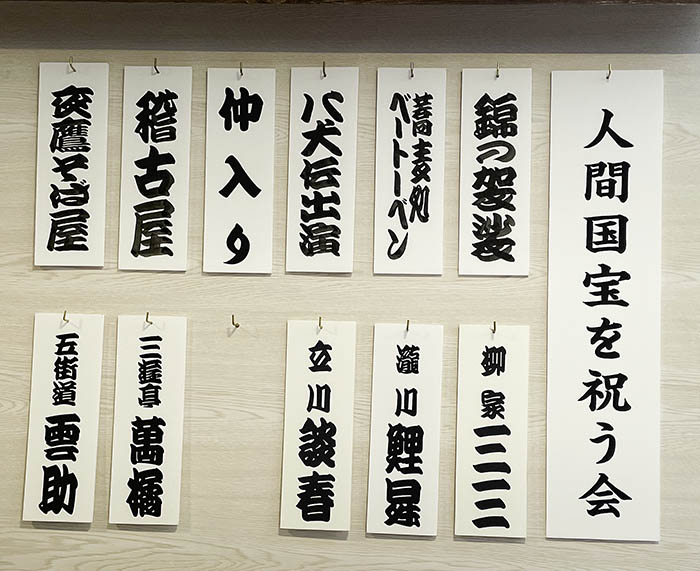 人間国宝を祝う会
錦の袈裟
柳家三三
蕎麦処
ベートーベン
瀧川鯉昇
八犬伝出演
立川談春
仲入り
稽古屋
三遊亭萬橘
夜鷹そば屋
五街道雲助